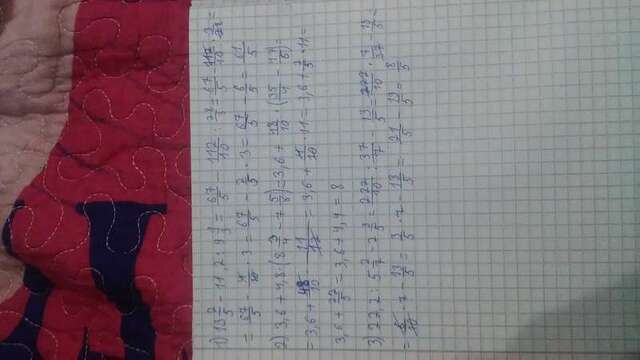 1) 13 2/5 - 11,2 : 9 1/3 = 67/5 - 112/10 : 28/3 = 67/5 - 112/10 · 3/28 =
= 67/5 - 4/10 · 3 = 67/5 - 2/5 · 3 = 67/5 - 6/5 = 61/5
2) 3,6 + 4,8 · (8 3/4 - 7 5/6) = 3,6 + 48/10 · (35/4 - 47/6) =
= 3,6 + 48/10 · 11/12 = 3,6 + 4/10 · 11 = 3,6 + 2/5 · 11 =
3,6 + 22/5 = 3,6 + 4,4 = 8
3) 22,2 : 5 2/7 - 2 3/5 = 222/10 : 37/7 - 13/5 = 222/10 · 7/37 - 13/5 =
= 6/10 · 7 - 13/5 = 3/5 · 7 - 13/5 = 21/5 - 13/5 = 8/5